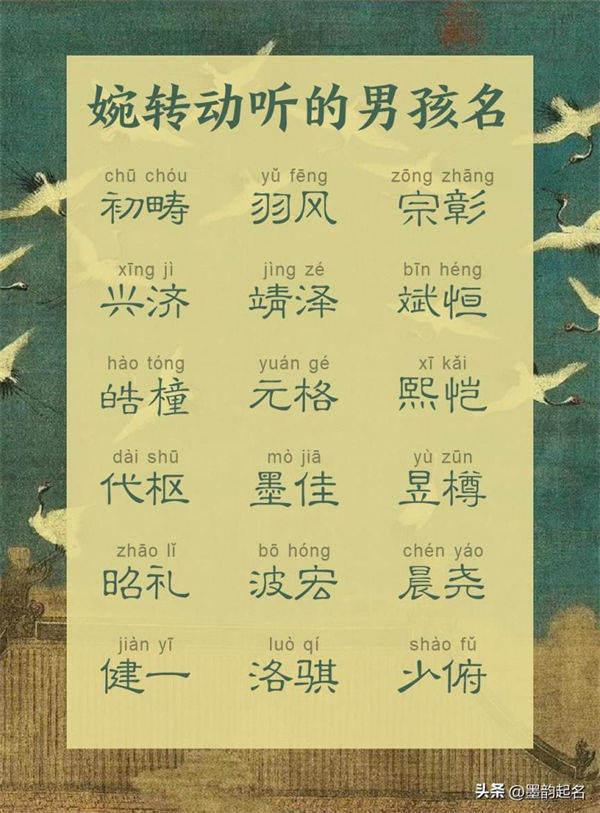 婉转动听的男孩名
chū chóu yǔ fēng zōng zhāng
初畴 羽风 宗彰
xīng jì jìng zé bīn héng
兴济 靖泽 斌恒
hào tóng yuán gé xī kǎi
皓橦 元格 熙恺
dài shū mò jiā yù zūn
代枢 墨佳 昱樽
zhāo lǐ bō hóng chén yáo
昭礼 波宏 晨尧
jiàn yī luò qí shào fǔ
健一 洛骐 少俯
头条 @墨韵起名